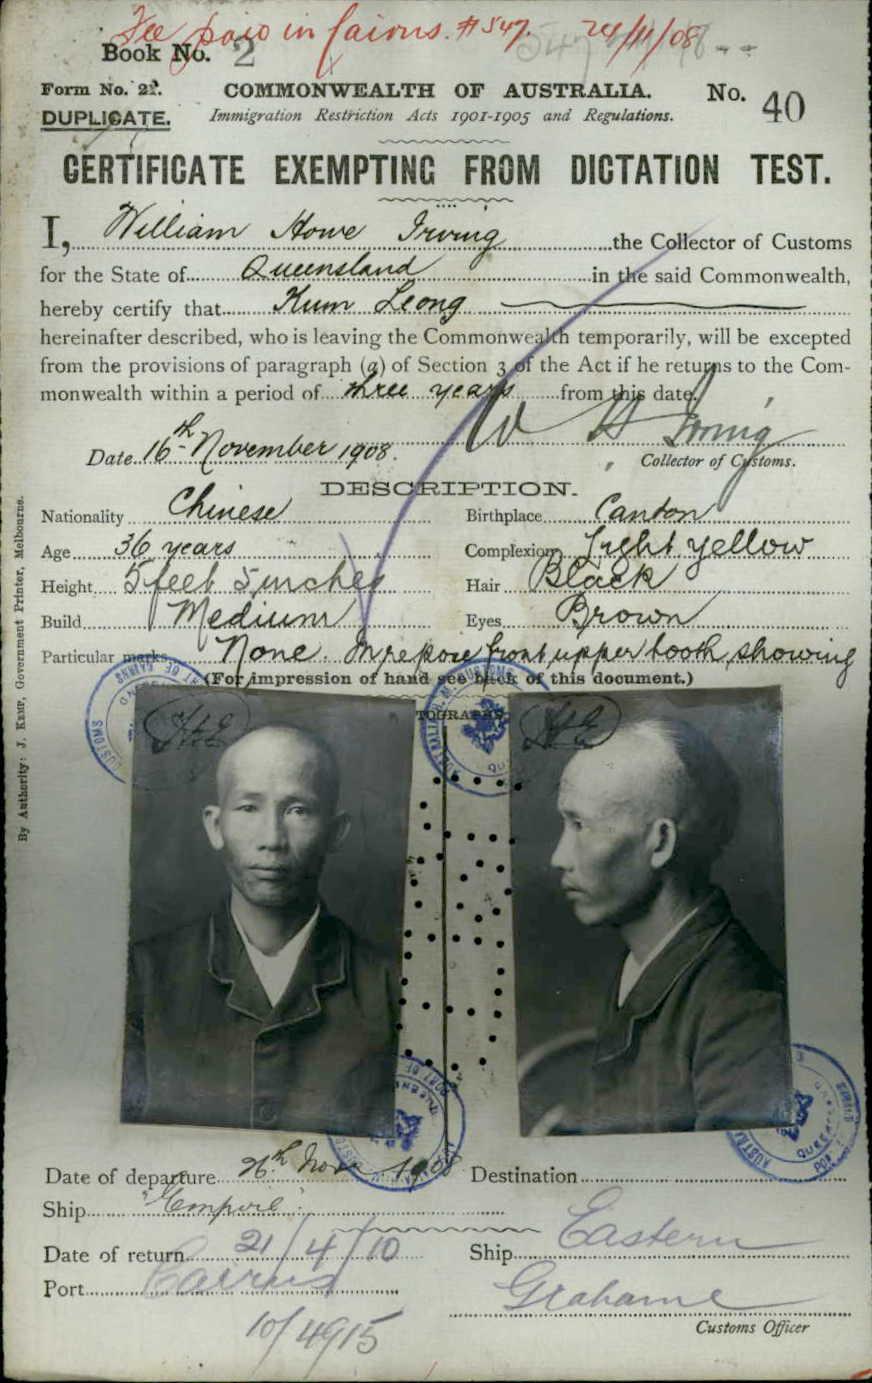 Fee paid in Cairns. #547. 24/11/08
Book No. 2
547
Form No. 22. COMMONWEALTH OF AUSTRALIA. No. 40
DUPLICATE. Immigration Restriction Acts 1901-1905 and Regulations.
CERTIFICATE EXEMPTING FROM DICTATION TEST.
I, William Howe Irving the Collector of Customs
for the State of Queensland in the said Commonwealth,
hereby certify that Kum Leong
hereinafter described, who is leaving the Commonwealth temporarily, will be excepted
from the provisions of paragraph (a) of Section 3 of the Act if he returns to the Com-
monwealth within a period of three years from this date.
W H Irving
Date 16th November 1908.
Collector of Customs.
DESCRIPTION.
Nationality Chinese Birthplace Canton
Age 36 years Complexion Light yellow
Height 5 feet 5 inches Hair Black
Build Medium Eyes Brown
Particular marks None. In repose front upper tooth showing
(For impression of hand see back of this document.)
By Authority: J. Kemp, Government Printer, Melbourne.
Date of departure 26th Novr 1908 Destination
Ship "Empire"
Date of return 21/4/10 Ship Eastern
Port Cairns Grahame
10/4915
Customs Officer